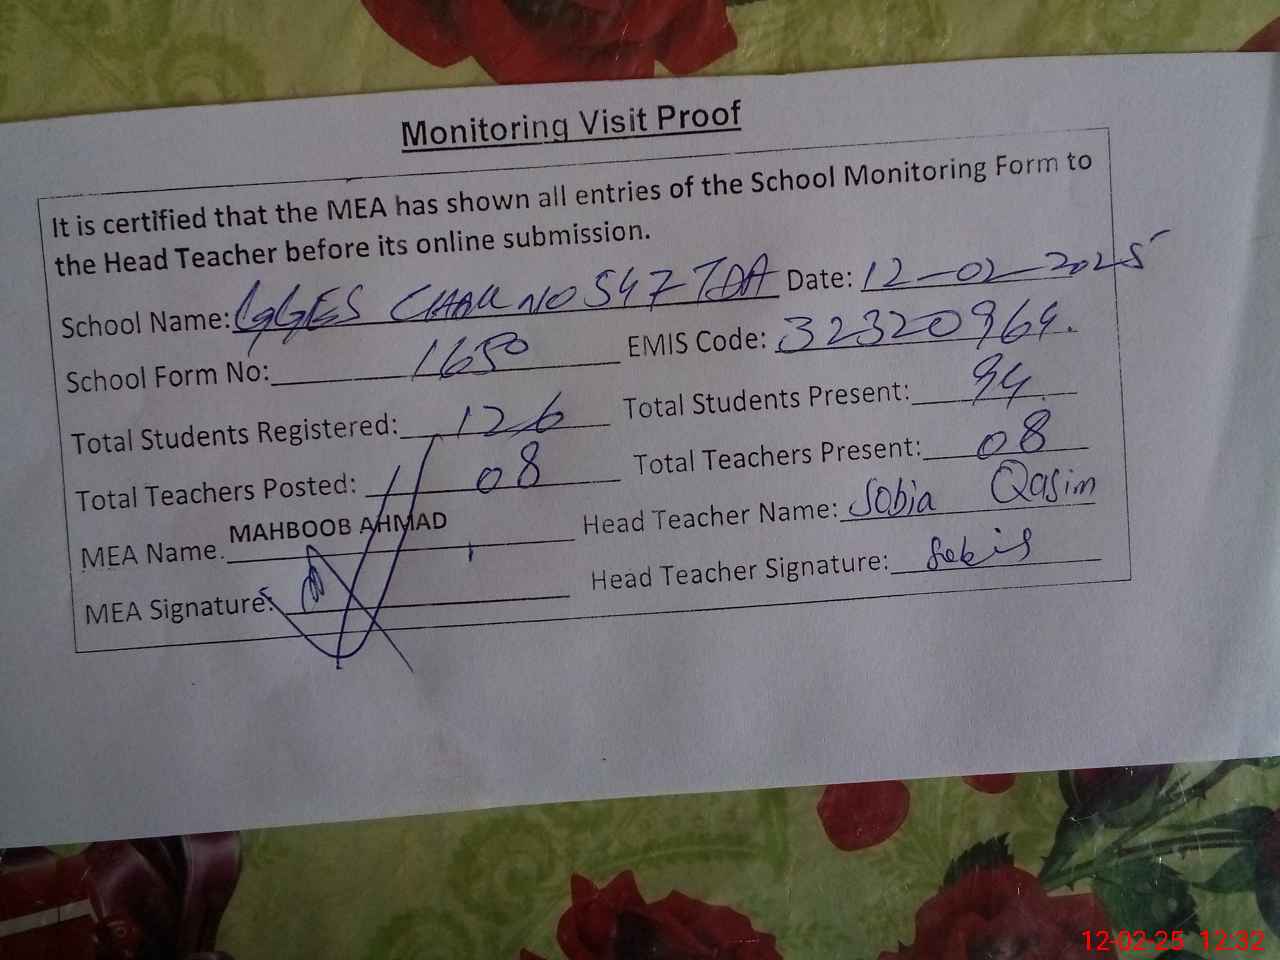 Monitoring Visit Proof
It is certified that the MEA has shown all entries of the School Monitoring Form to
the Head Teacher before its online submission.
School Name: GGES CHAK NO 547 TDA Date: 12-02-2025
School Form No: 1650 EMIS Code: 32320964.
Total Students Registered: 126 Total Students Present: 94
Total Teachers Posted: 08 Total Teachers Present: 08
MEA Name. MAHBOOB AHMAD Head Teacher Name: Sobia Qasim
MEA Signature: Head Teacher Signature:
12-02-25 12:32